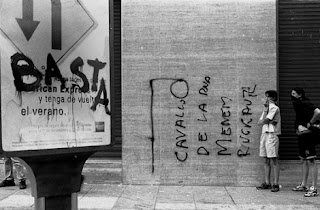 BASTA
rican Express
y tenga de vuelta
el verano.
CAVALLO
DE LA RUA
MENEM
RUCKAUF